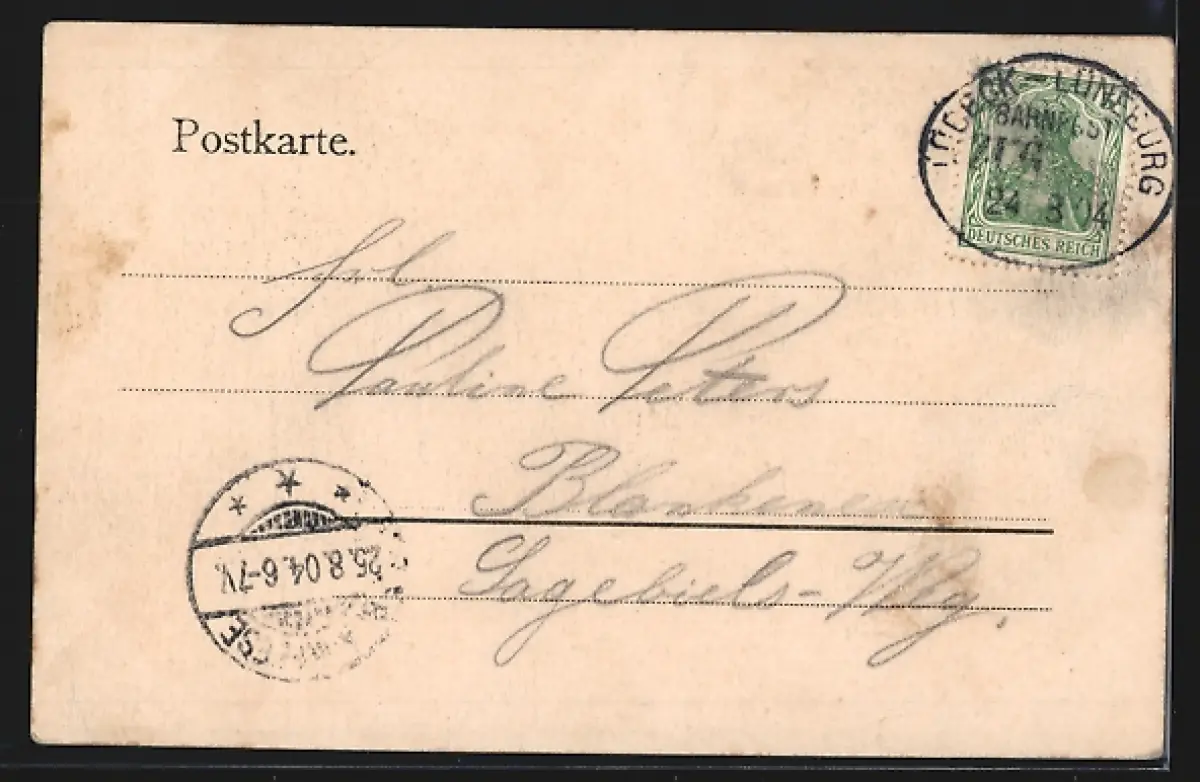 Postkarte.
LÜBECK - LÜNEBURG
BAHNPOST
24 8 04
DEUTSCHES REICH
Frl
Pauline Peters
Blankenese
Sagebiels-Weg.
25.8.04.6-7V.